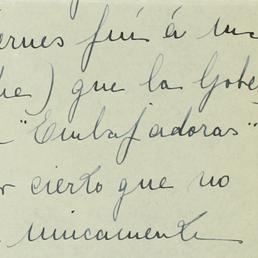 ernes fuí á un
ue) que la Gobe
"Embajadoras"
r cierto que no
unicamente